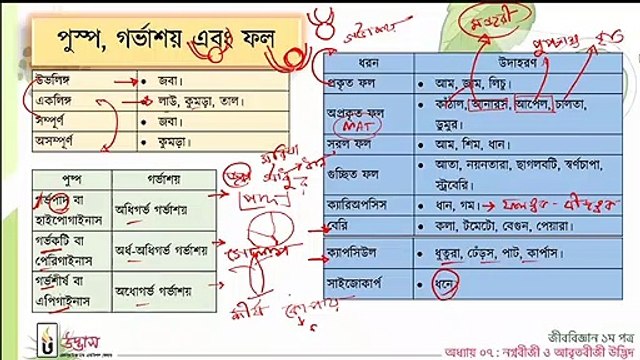 পুস্প, গর্ভাশয় এবং ফল
উভলিঙ্গ • জবা।
একলিঙ্গ • লাউ, কুমড়া, তাল।
সম্পূর্ণ • জবা।
অসম্পূর্ণ • কুমড়া।
পুষ্প গর্ভাশয়
গর্ভপাদ বা
হাইপোগাইনাস
অধিগর্ভ গর্ভাশয়
গর্ভকটি বা
পেরিগাইনাস
অর্ধ-অধিগর্ভ গর্ভাশয়
গর্ভশীর্ষ বা
এপিগাইনাস
অধোগর্ভ গর্ভাশয়
ধরন উদাহরণ
প্রকৃত ফল • আম, জাম, লিচু।
অপ্রকৃত ফল • কাঁঠাল, আনারস, আপেল, চালতা,
ডুমুর।
MAT
সরল ফল • আম, শিম, ধান।
গুচ্ছিত ফল • আতা, নয়নতারা, ছাগলবটি, স্বর্ণচাপা,
স্ট্রবেরি।
ক্যারিঅপসিস • ধান, গম।
বেরি • কলা, টমেটো, বেগুন, পেয়ারা।
ক্যাপসিউল • ধুতুরা, ঢেঁড়স, পাট, কার্পাস।
সাইজোকার্প • ধনে।
মঞ্জরী
উদ্ভাস
জীববিজ্ঞান ১ম পত্র
অধ্যায় ০৭ : নগ্নবীজী ও আবৃতবীজী উদ্ভিদ